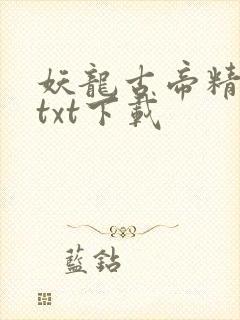 妖龍古帝精
txt下載
藍鉆